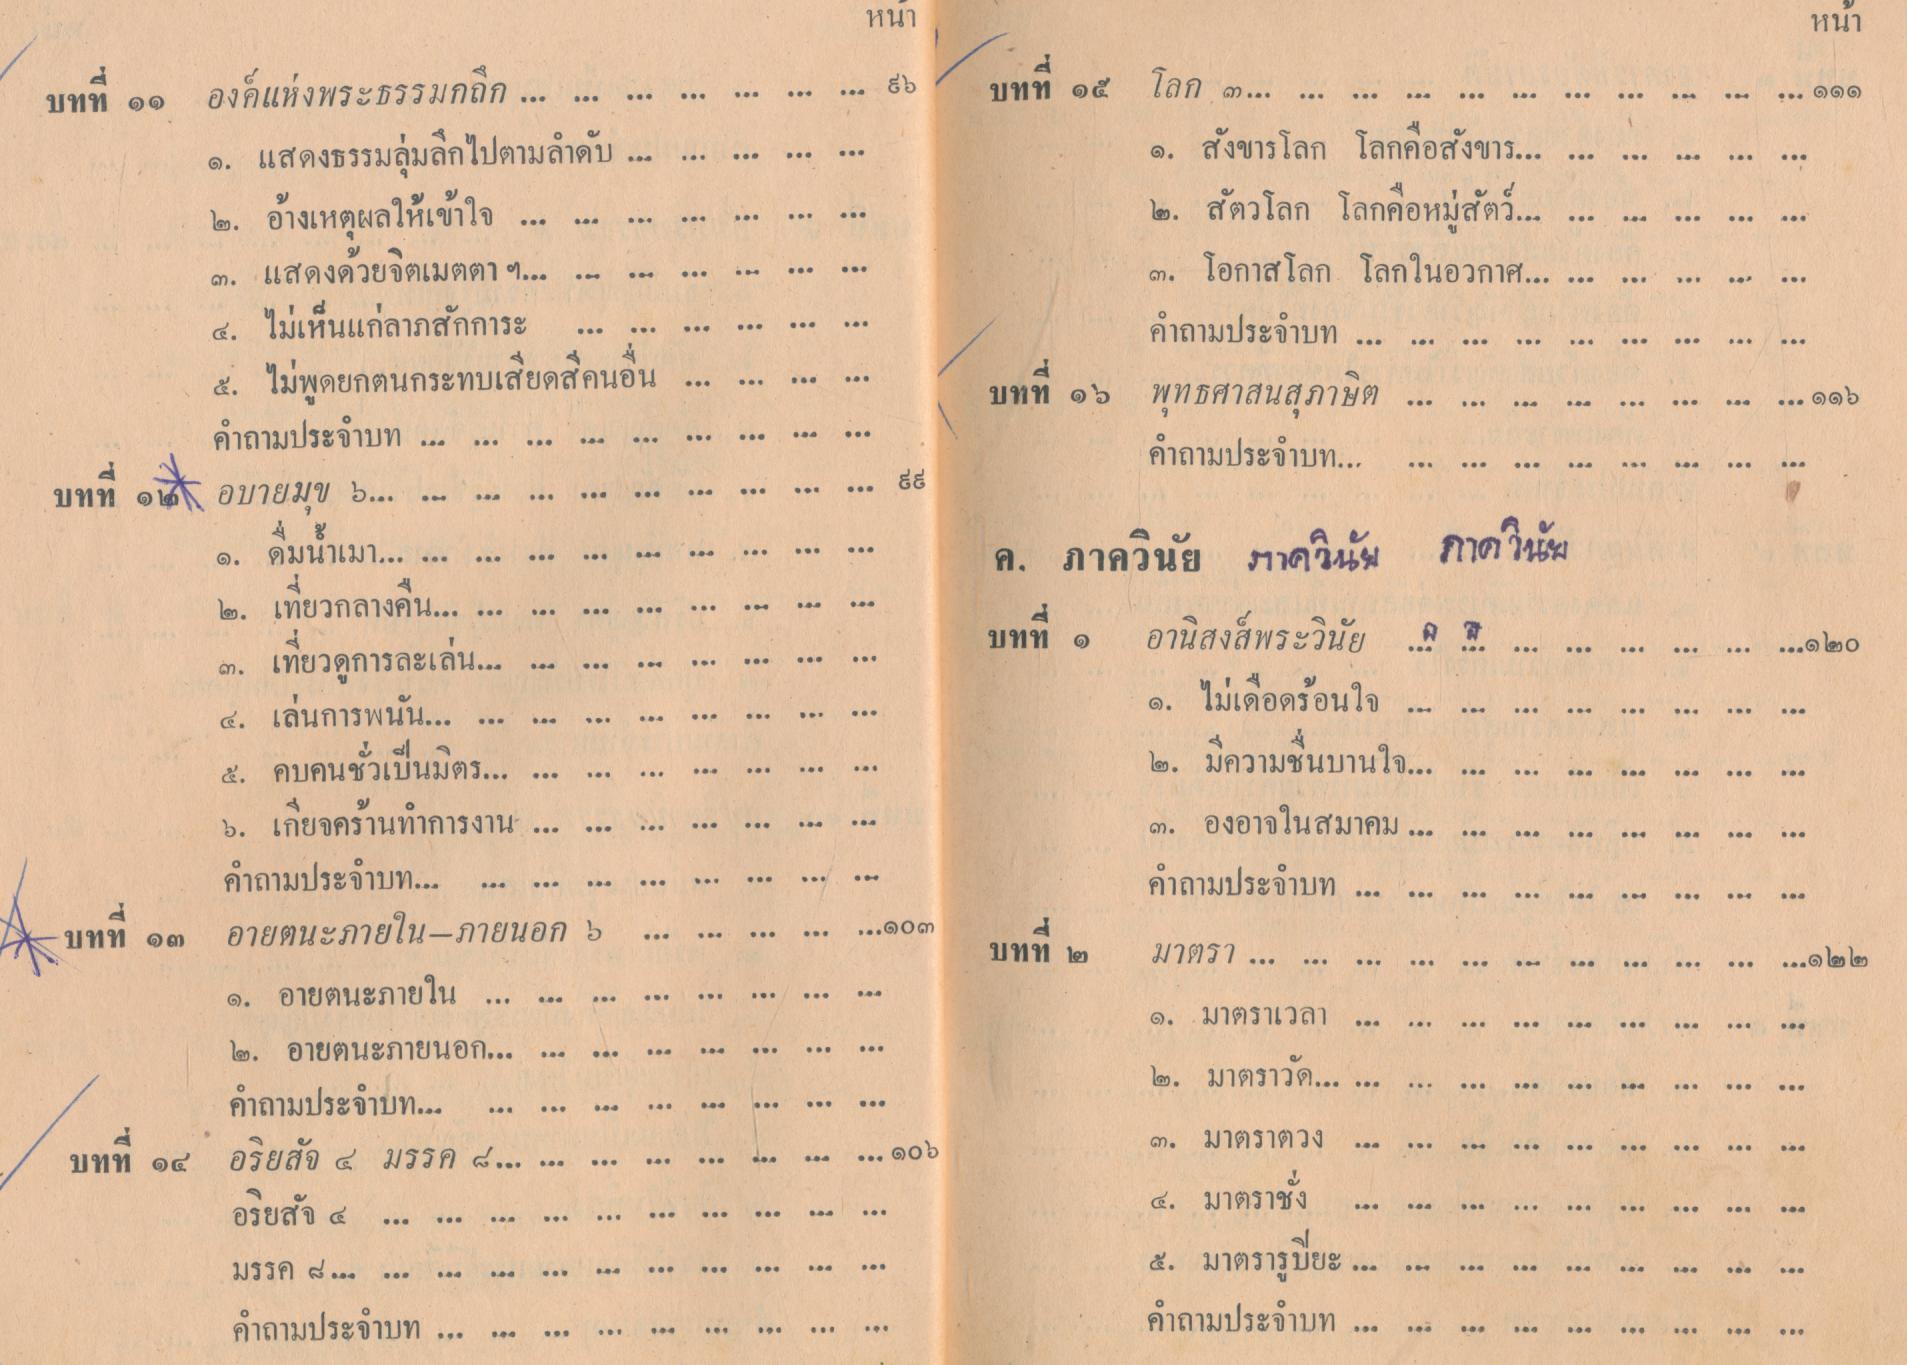 หน้า
บทที่ ๑๑ องค์แห่งพระธรรมกถึก ... ... ... ... ... ... ... ๙๖
๑. แสดงธรรมลุ่มลึกไปตามลำดับ ... ... ... ... ...
๒. อ้างเหตุผลให้เข้าใจ ... ... ... ... ... ... ...
๓. แสดงด้วยจิตเมตตา ฯ... ... ... ... ... ... ...
๔. ไม่เห็นแก่ลาภสักการะ ... ... ... ... ... ...
๕. ไม่พูดยกตนกระทบเสียดสีคนอื่น ... ... ... ...
คำถามประจำบท ... ... ... ... ... ... ... ... ...
บทที่ ๑๒ อบายมุข ๖... ... ... ... ... ... ... ... ... ... ๙๙
๑. ดื่มน้ำเมา... ... ... ... ... ... ... ... ... ...
๒. เที่ยวกลางคืน... ... ... ... ... ... ... ... ...
๓. เที่ยวดูการละเล่น... ... ... ... ... ... ... ...
๔. เล่นการพนัน... ... ... ... ... ... ... ... ...
๕. คบคนชั่วเป็นมิตร... ... ... ... ... ... ... ...
๖. เกียจคร้านทำการงาน ... ... ... ... ... ... ...
คำถามประจำบท... ... ... ... ... ... ... ... ...
บทที่ ๑๓ อายตนะภายใน–ภายนอก ๖ ... ... ... ... ...๑๐๓
๑. อายตนะภายใน ... ... ... ... ... ... ... ...
๒. อายตนะภายนอก... ... ... ... ... ... ... ...
คำถามประจำบท... ... ... ... ... ... ... ... ...
บทที่ ๑๔ อริยสัจ ๔ มรรค ๘... ... ... ... ... ... ... ...๑๐๖
อริยสัจ ๔ ... ... ... ... ... ... ... ... ... ...
มรรค ๘... ... ... ... ... ... ... ... ... ... ...
คำถามประจำบท ... ... ... ... ... ... ... ... ...
หน้า
บทที่ ๑๕ โลก ๓... ... ... ... ... ... ... ... ... ... ...๑๑๑
๑. สังขารโลก โลกคือสังขาร... ... ... ... ... ...
๒. สัตวโลก โลกคือหมู่สัตว์... ... ... ... ... ...
๓. โอกาสโลก โลกในอวกาศ... ... ... ... ... ...
คำถามประจำบท ... ... ... ... ... ... ... ... ...
บทที่ ๑๖ พุทธศาสนสุภาษิต ... ... ... ... ... ... ... ...๑๑๖
คำถามประจำบท... ... ... ... ... ... ... ... ...
ค. ภาควินัย ภาควินัย ภาควินัย
บทที่ ๑ อานิสงส์พระวินัย ... ... ... ... ... ... ... ...๑๒๐
๑. ไม่เดือดร้อนใจ ... ... ... ... ... ... ... ...
๒. มีความชื่นบานใจ... ... ... ... ... ... ... ...
๓. องอาจในสมาคม ... ... ... ... ... ... ... ...
คำถามประจำบท ... ... ... ... ... ... ... ... ...
บทที่ ๒ มาตรา ... ... ... ... ... ... ... ... ... ... ...๑๒๒
๑. มาตราเวลา ... ... ... ... ... ... ... ... ...
๒. มาตราวัด... ... ... ... ... ... ... ... ... ...
๓. มาตราตวง ... ... ... ... ... ... ... ... ...
๔. มาตราชั่ง ... ... ... ... ... ... ... ... ...
๕. มาตรารูปิยะ ... ... ... ... ... ... ... ... ...
คำถามประจำบท ... ... ... ... ... ... ... ... ...